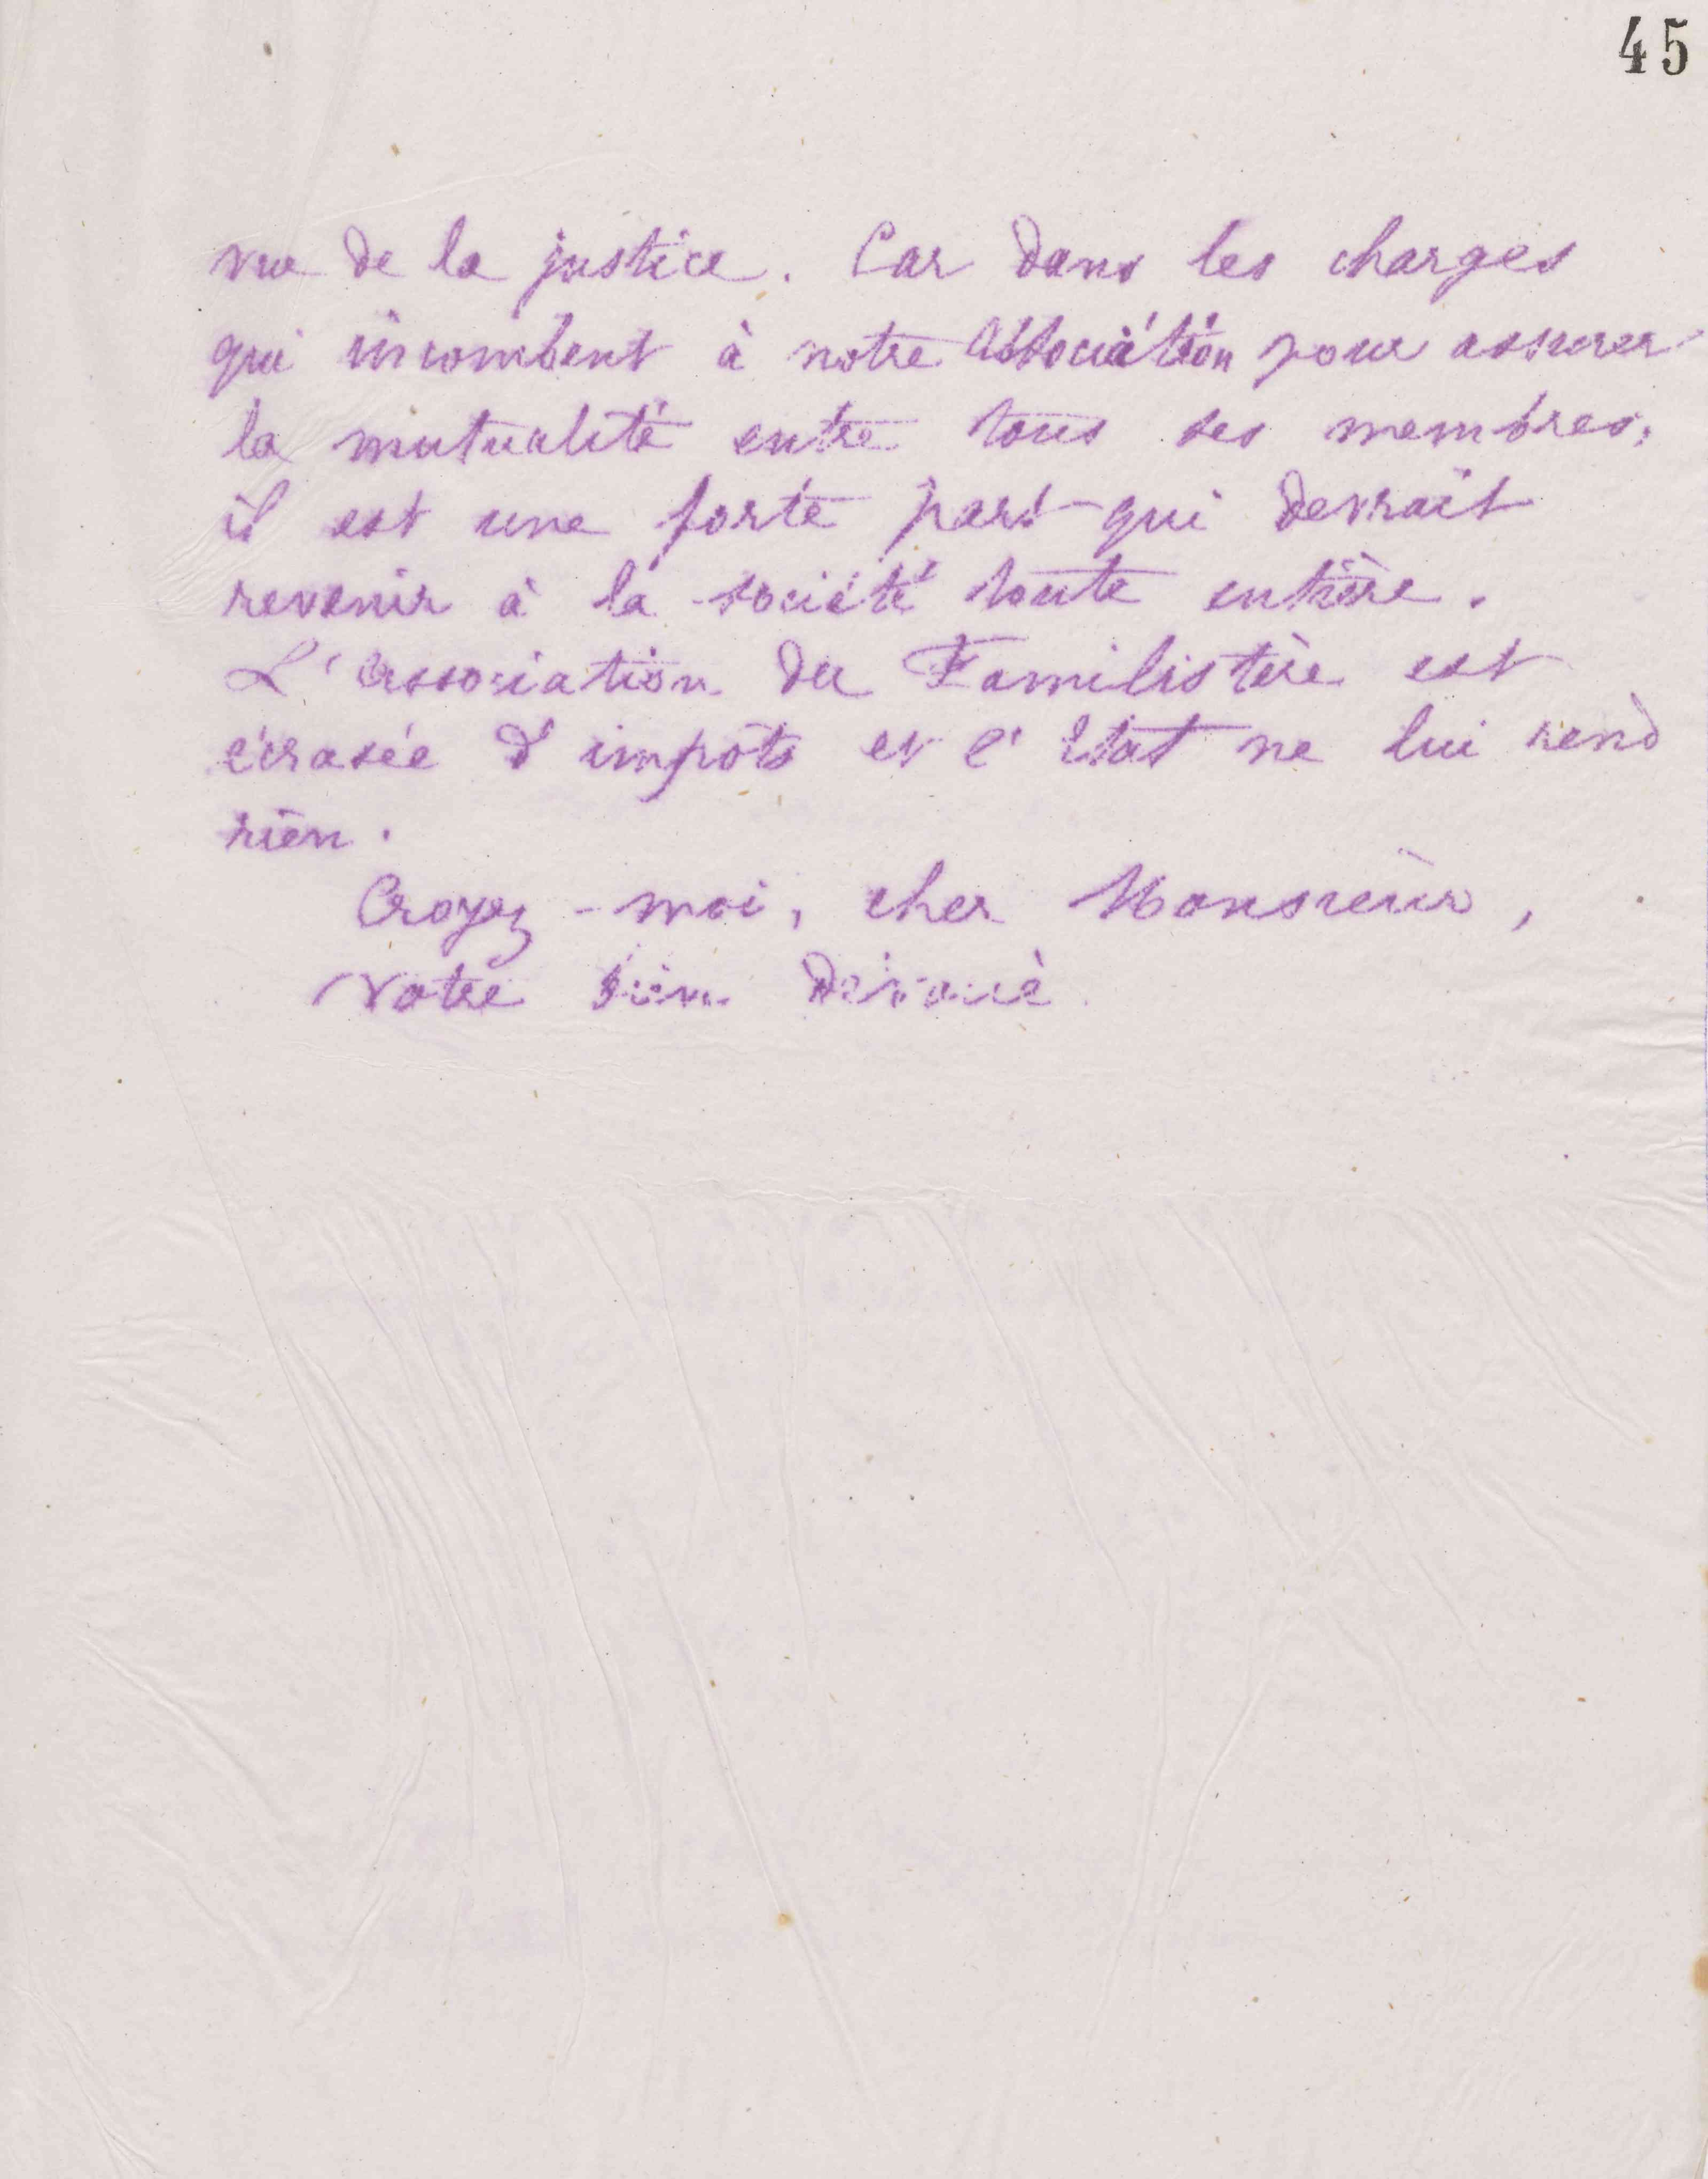 45
vue de la justice. Car dans les charges
qui incombent à notre association pour assurer
la mutualité entre tous ses membres,
il est une forte part qui devrait
revenir à la société toute entière.
L'association du Familistère est
écrasée d'impôts et l'état ne lui rend
rien.
Croyez-moi, cher Monsieur,
votre bien dévoué